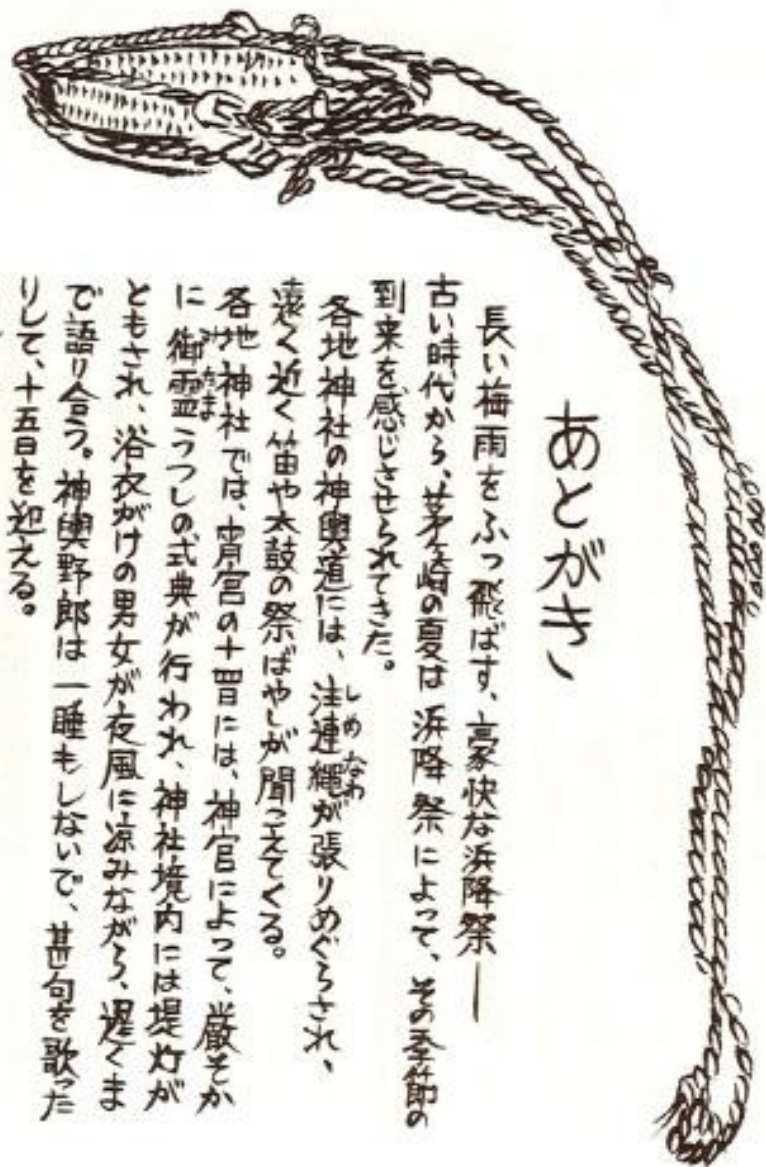 あとがき
長い梅雨をふっ飛ばす、豪快な浜降祭──
古い時代から、茅ヶ崎の夏は浜降祭によって、その季節の
到来を感じさせられてきた。
各地神社の神輿道には、注連縄が張りめぐらされ、
しめなわ
遠く近く笛や太鼓の祭ばやしが聞こえてくる。
各地神社では、宵宮の十四日には、神官によって、厳そか
に御霊うつしの式典が行われ、神社境内には堤灯が
みたま
ともされ、浴衣がけの男女が夜風に涼みながら、遅くま
で語り合う。神輿野郎は一睡もしないで、甚句を歌った
りして、十五日を迎える。